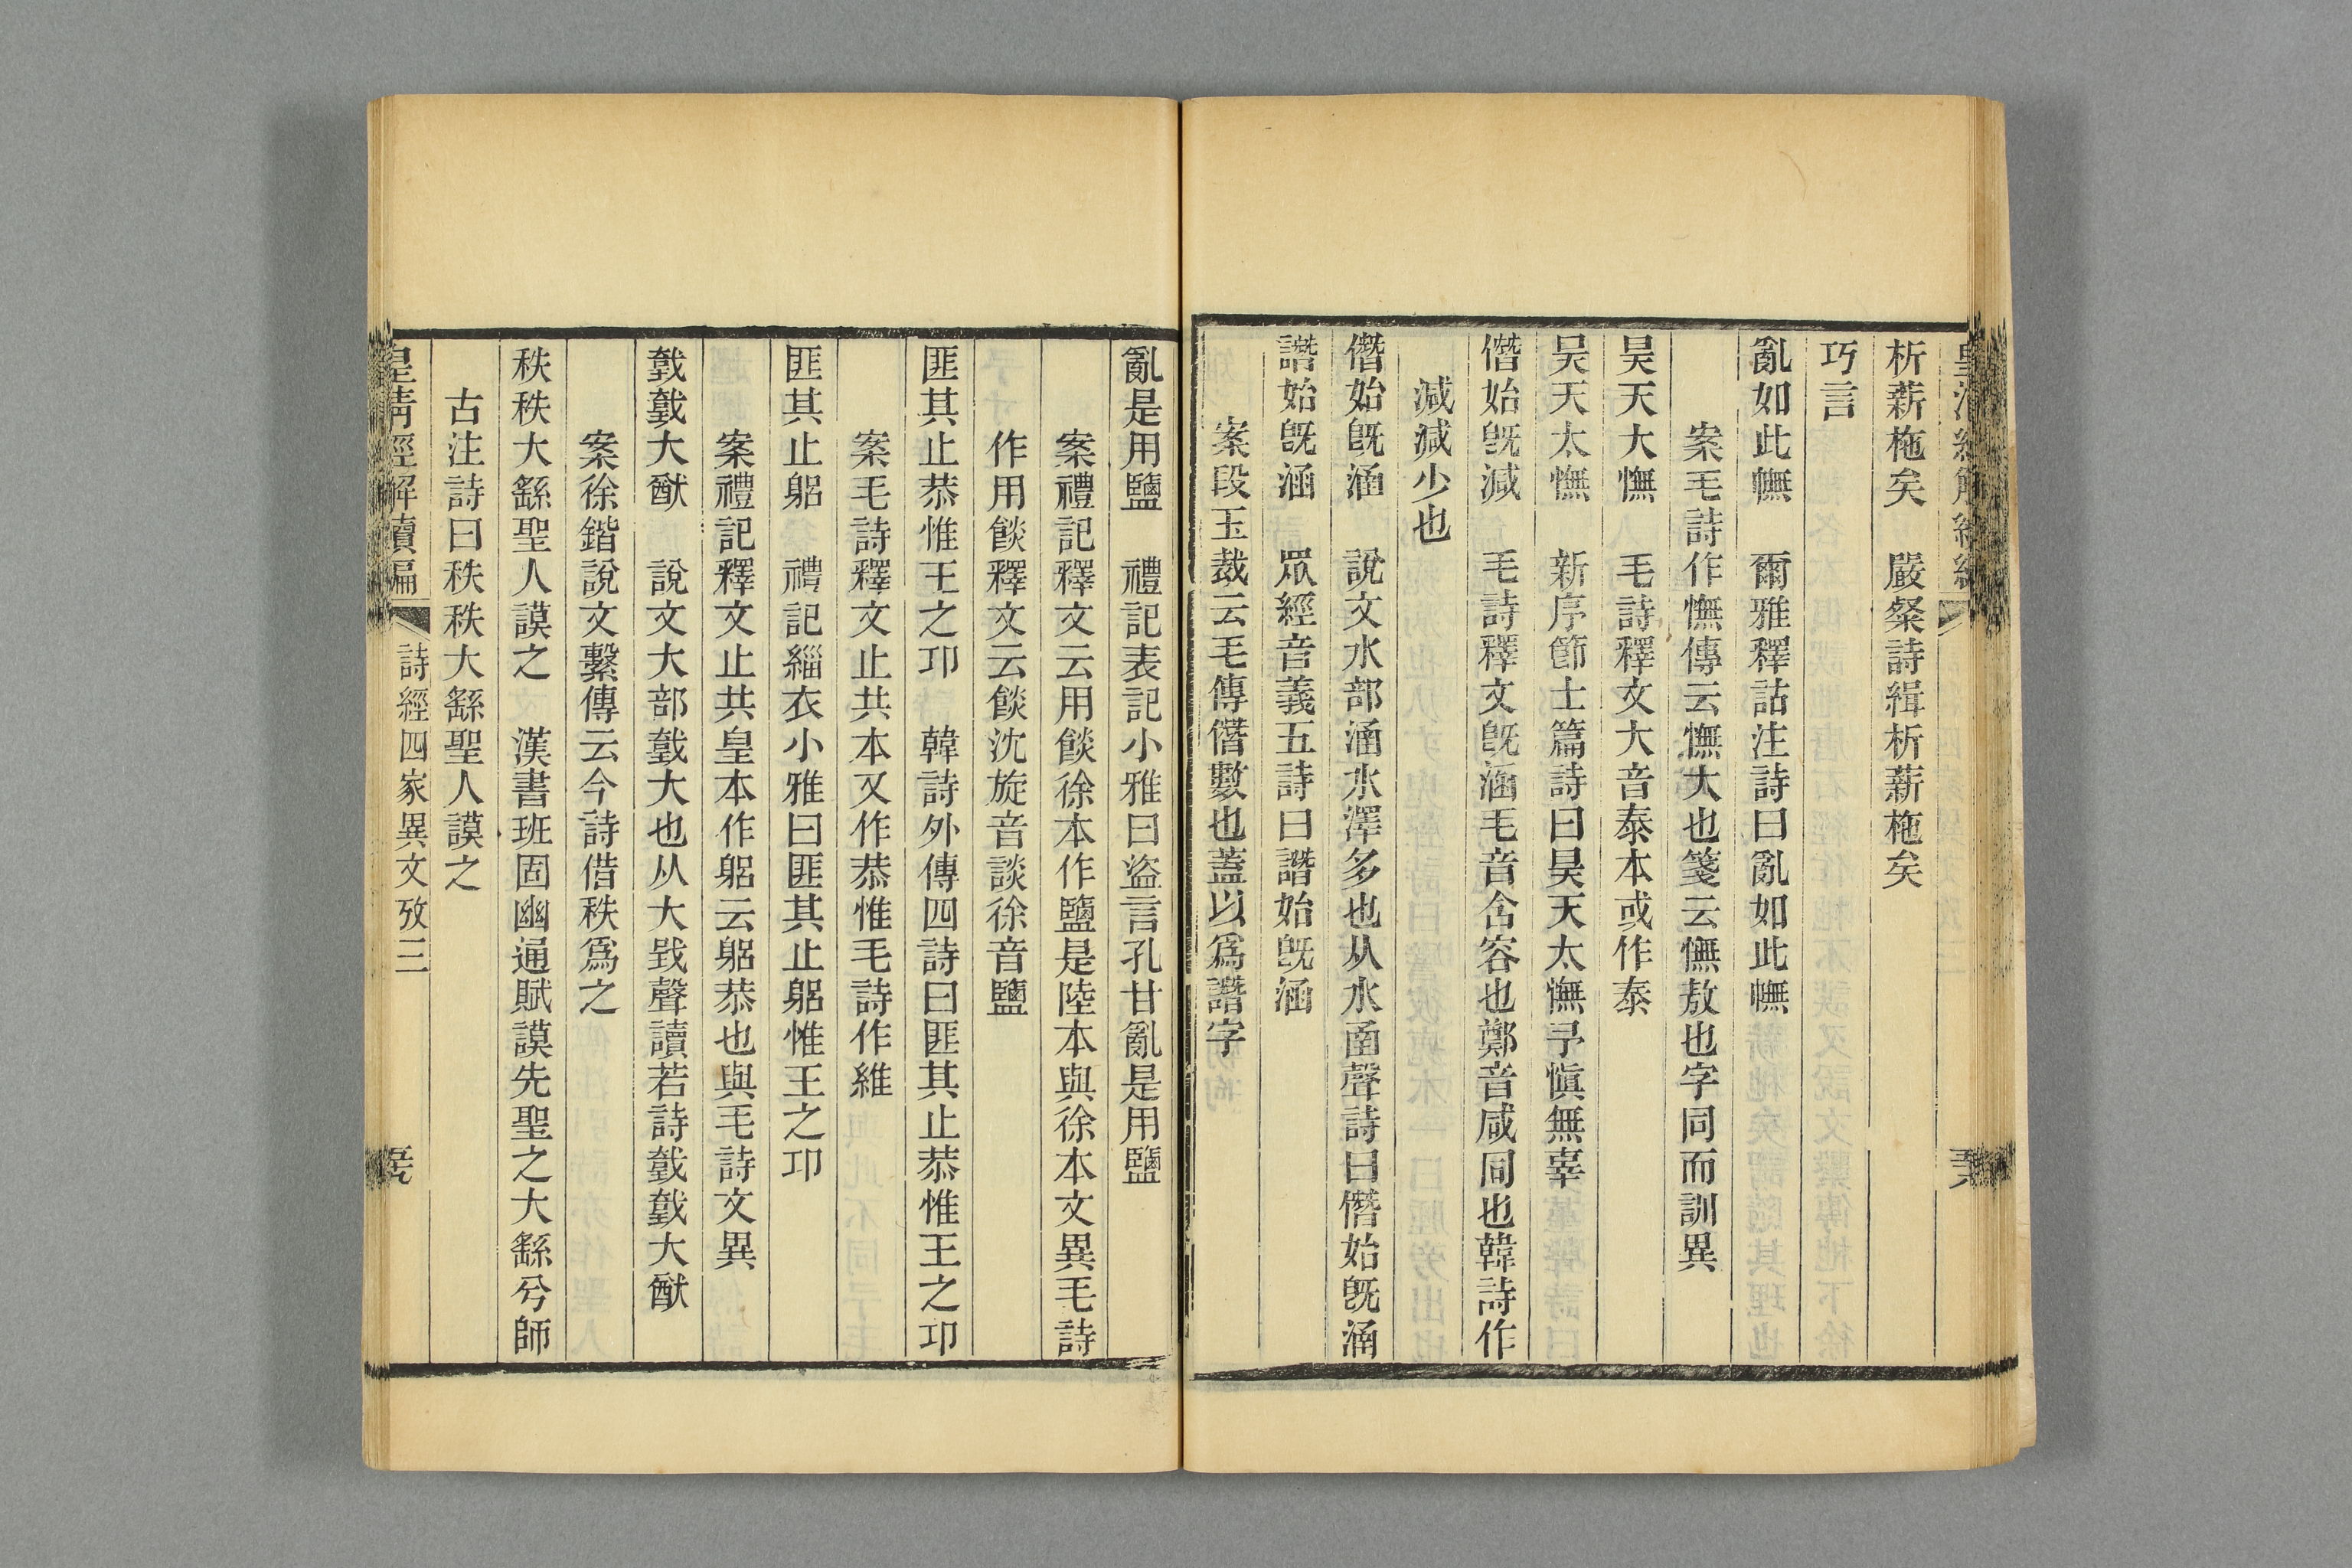 析薪杝矣　嚴粲詩緝析薪杝矣
巧言
亂如此幠　爾雅釋詁注詩曰亂如此幠
案毛詩作憮傳云憮大也箋云憮敖也字同而訓異
昊天大憮　毛詩釋文大音泰本或作泰
昊天太憮　新序節士篇詩曰昊天太憮予愼無辜
僭始旣減　毛詩釋文旣涵毛音含容也鄭音咸同也韓詩作
減減少也
僭始旣涵　說文水部涵水澤多也从水圅聲詩曰僭始旣涵
譖始旣涵　眾經音義五詩曰譖始旣涵
案段玉裁云毛傳僭數也蓋以爲譖字
亂是用鹽　禮記表記小雅曰盜言孔甘亂是用鹽
案禮記釋文云用餤徐本作鹽是陸本與徐本文異毛詩
作用餤釋文云餤沈旋音談徐音鹽
匪其止恭惟王之卭　韓詩外傳四詩曰匪其止恭惟王之卭
案毛詩釋文止共本又作恭惟毛詩作維
匪其止躬　禮記緇衣小雅曰匪其止躬惟王之卭
案禮記釋文止共皇本作躬云躬恭也與毛詩文異
戴戴大猷　說文大部戴大也从大𢦒聲讀若詩戴戴大猷
案徐鍇說文繫傳云今詩借秩爲之
秩秩大繇聖人謨之　漢書班固幽通賦謨先聖之大繇兮師
古注詩曰秩秩大繇聖人謨之
皇淸經解續編　詩經四家異文攷三